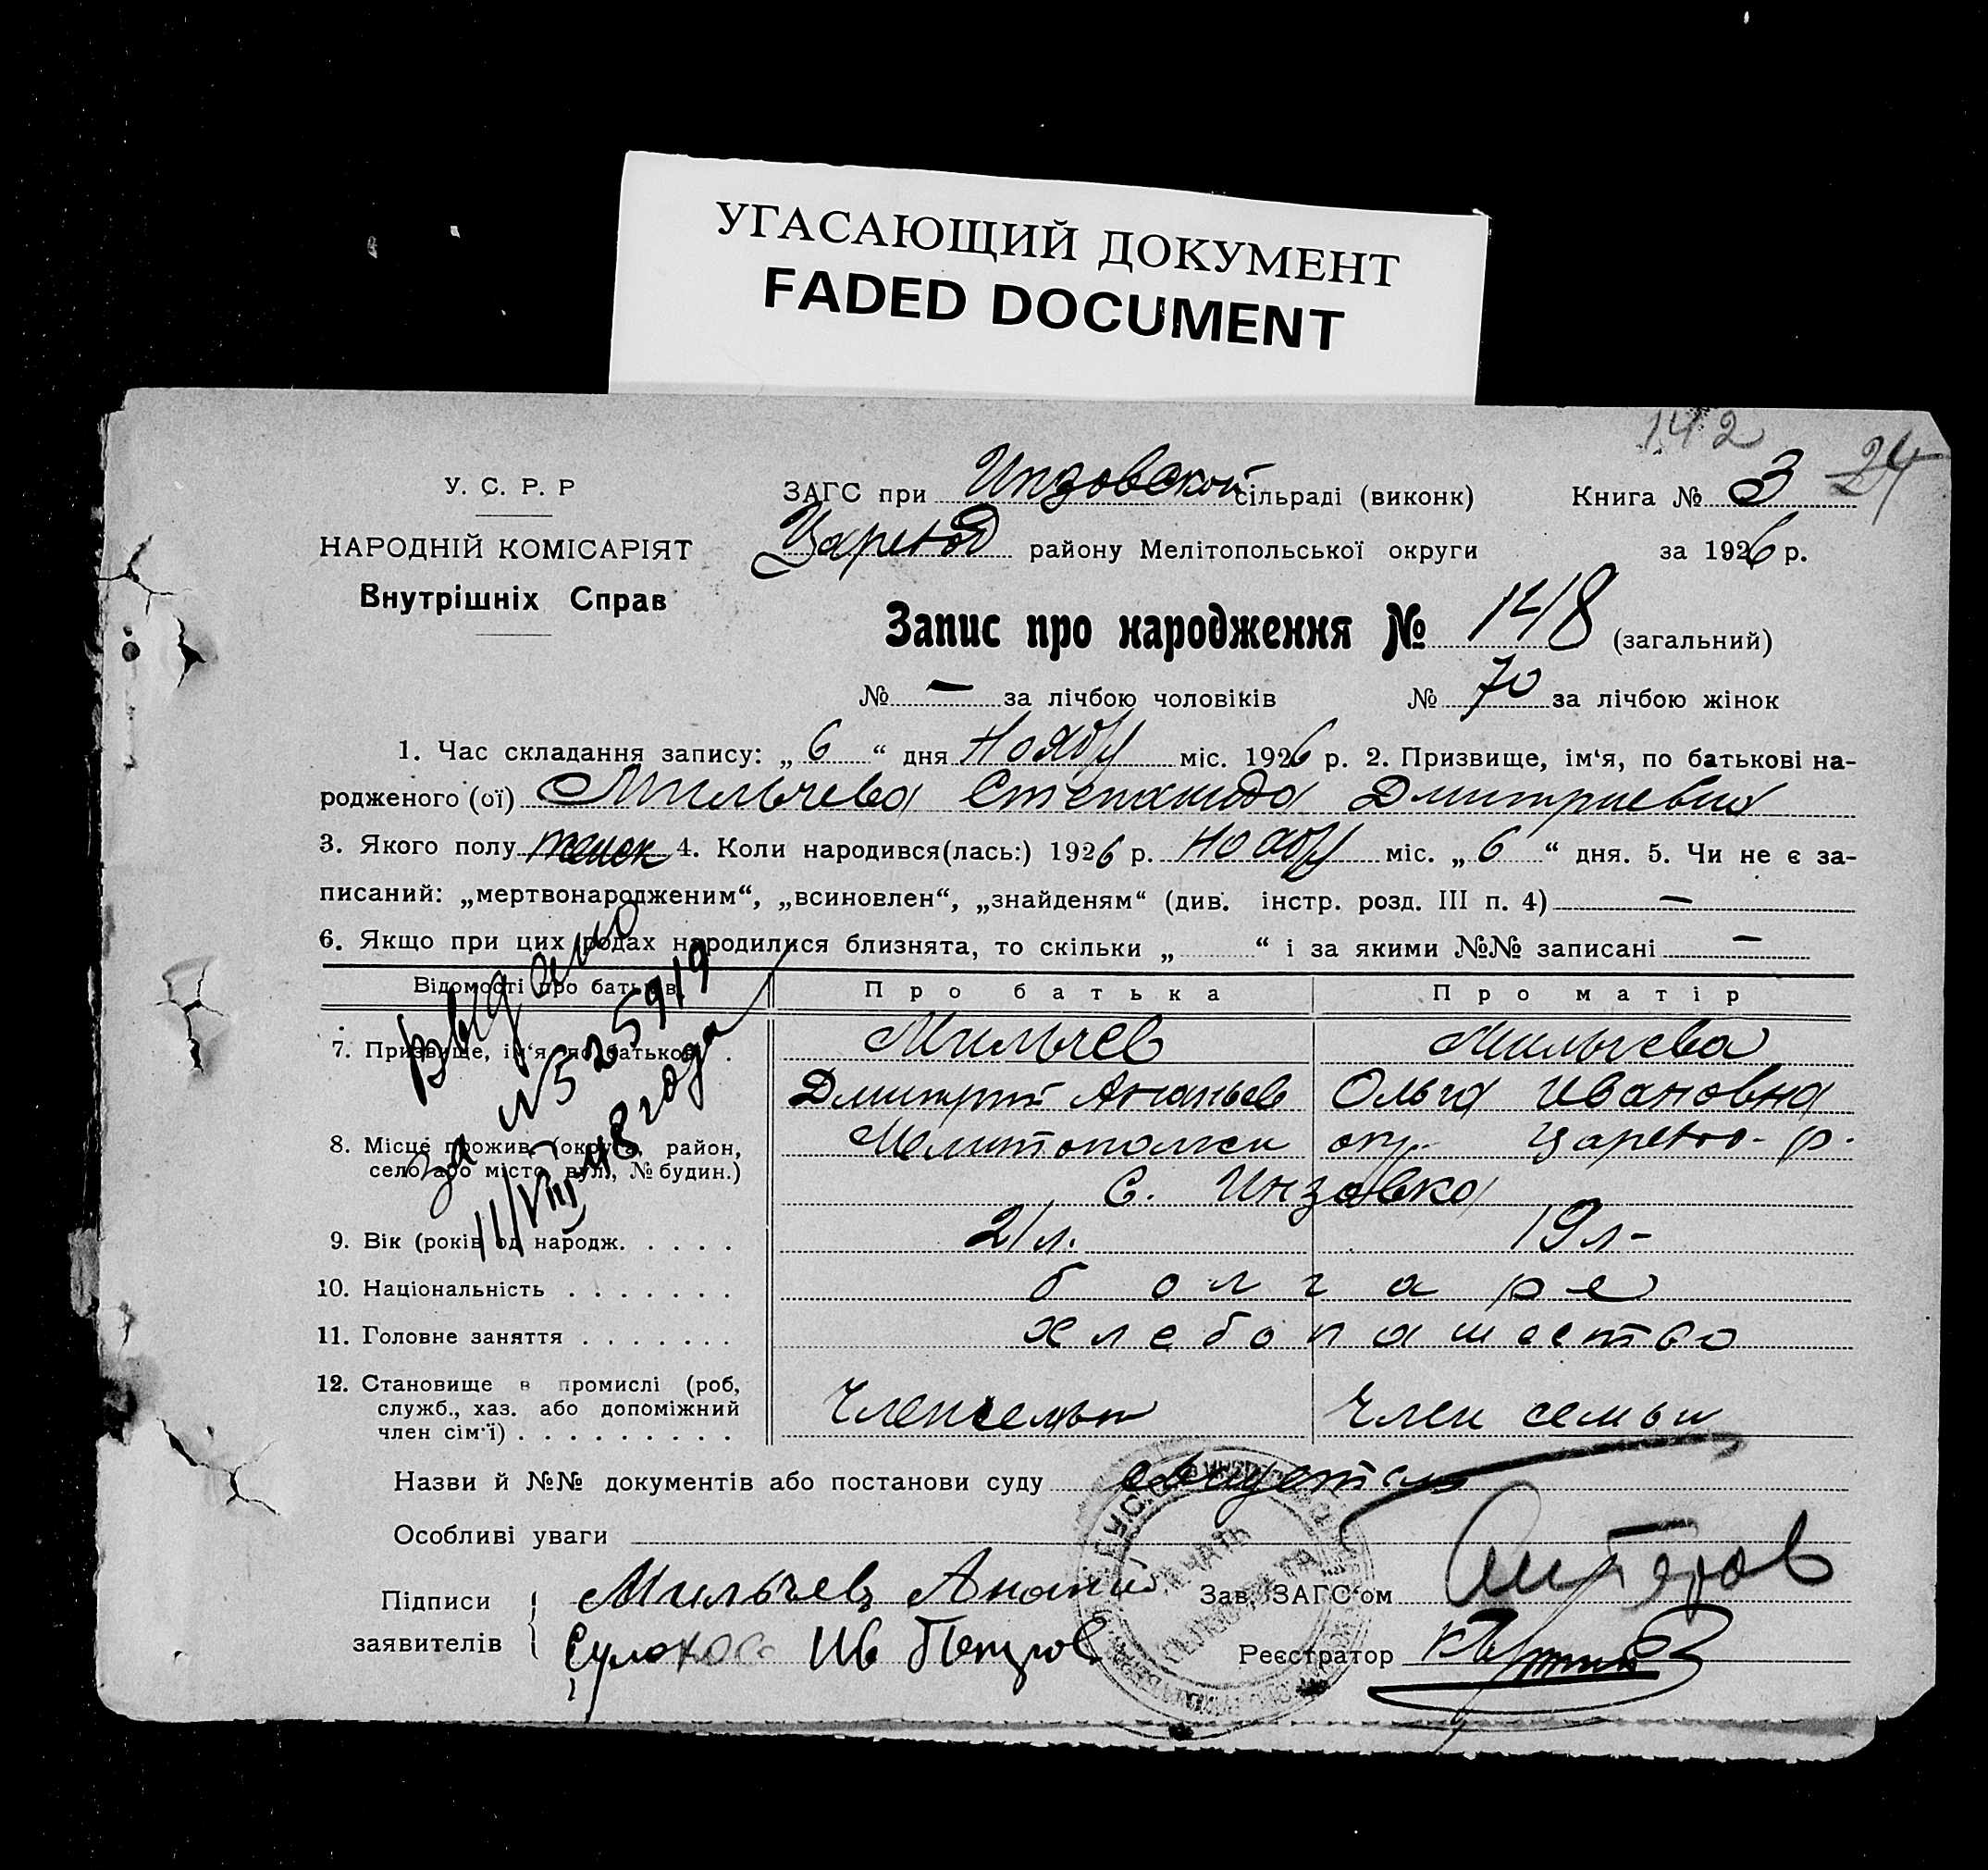 УГАСАЮЩИЙ ДОКУМЕНТ
FADED DOCUMENT
142
24
У. С. Р. Р
НАРОДНІЙ КОМІСАРІЯТ
Внутрішніх Справ
ЗАГС при Инзовской сільраді (виконк) Книга № 3
району Мелітопольської округи за 1926 р.
Запис про народження № 148 (загальний)
№ — за лічбою чоловіків № 70 за лічбою жінок
1. Час складання запису: „ 6 “ дня Ноября міс. 1926 р. 2. Призвище, ім‘я, по батькові на-
родженого (ої) Мильчева Степанида Дмитриевна
3. Якого полу женск 4. Коли народився(лась:) 1926 р. Ноября міс. „ 6 “ дня. 5. Чи не є за-
писаний: „мертвонародженим“, „всиновлен“, „знайденям“ (див. інстр. розд. III п. 4) —
6. Якщо при цих родах народилися близнята, то скільки „ “ і за якими №№ записані —
Відомості про батьків Про батька Про матір
7. Призвище, ім‘я, по батькові . Мильчев Мильчева
Дмитрий Ананьев Ольга Ивановна
8. Місце прожив. (округа, район, село або місто, вул., № будин.) окр. р.
с. Инзовка
9. Вік (років од народж. . . . . 21 л. 19 л-
10. Національність . . . . . . . болгаре
11. Головне заняття . . . . . . . хлебопашество
12. Становище в промислі (роб, служб., хаз. або допоміжний член сім‘ї) . . . . . . . . . Член семьи Член семьи
Выдано
за № 525919
11/VIII 48 года
Назви й №№ документів або постанови суду
Особливі уваги
Підписи заявителів Мильчев Ананий Зав. ЗАГС‘ом
Ив Петров Реєстратор